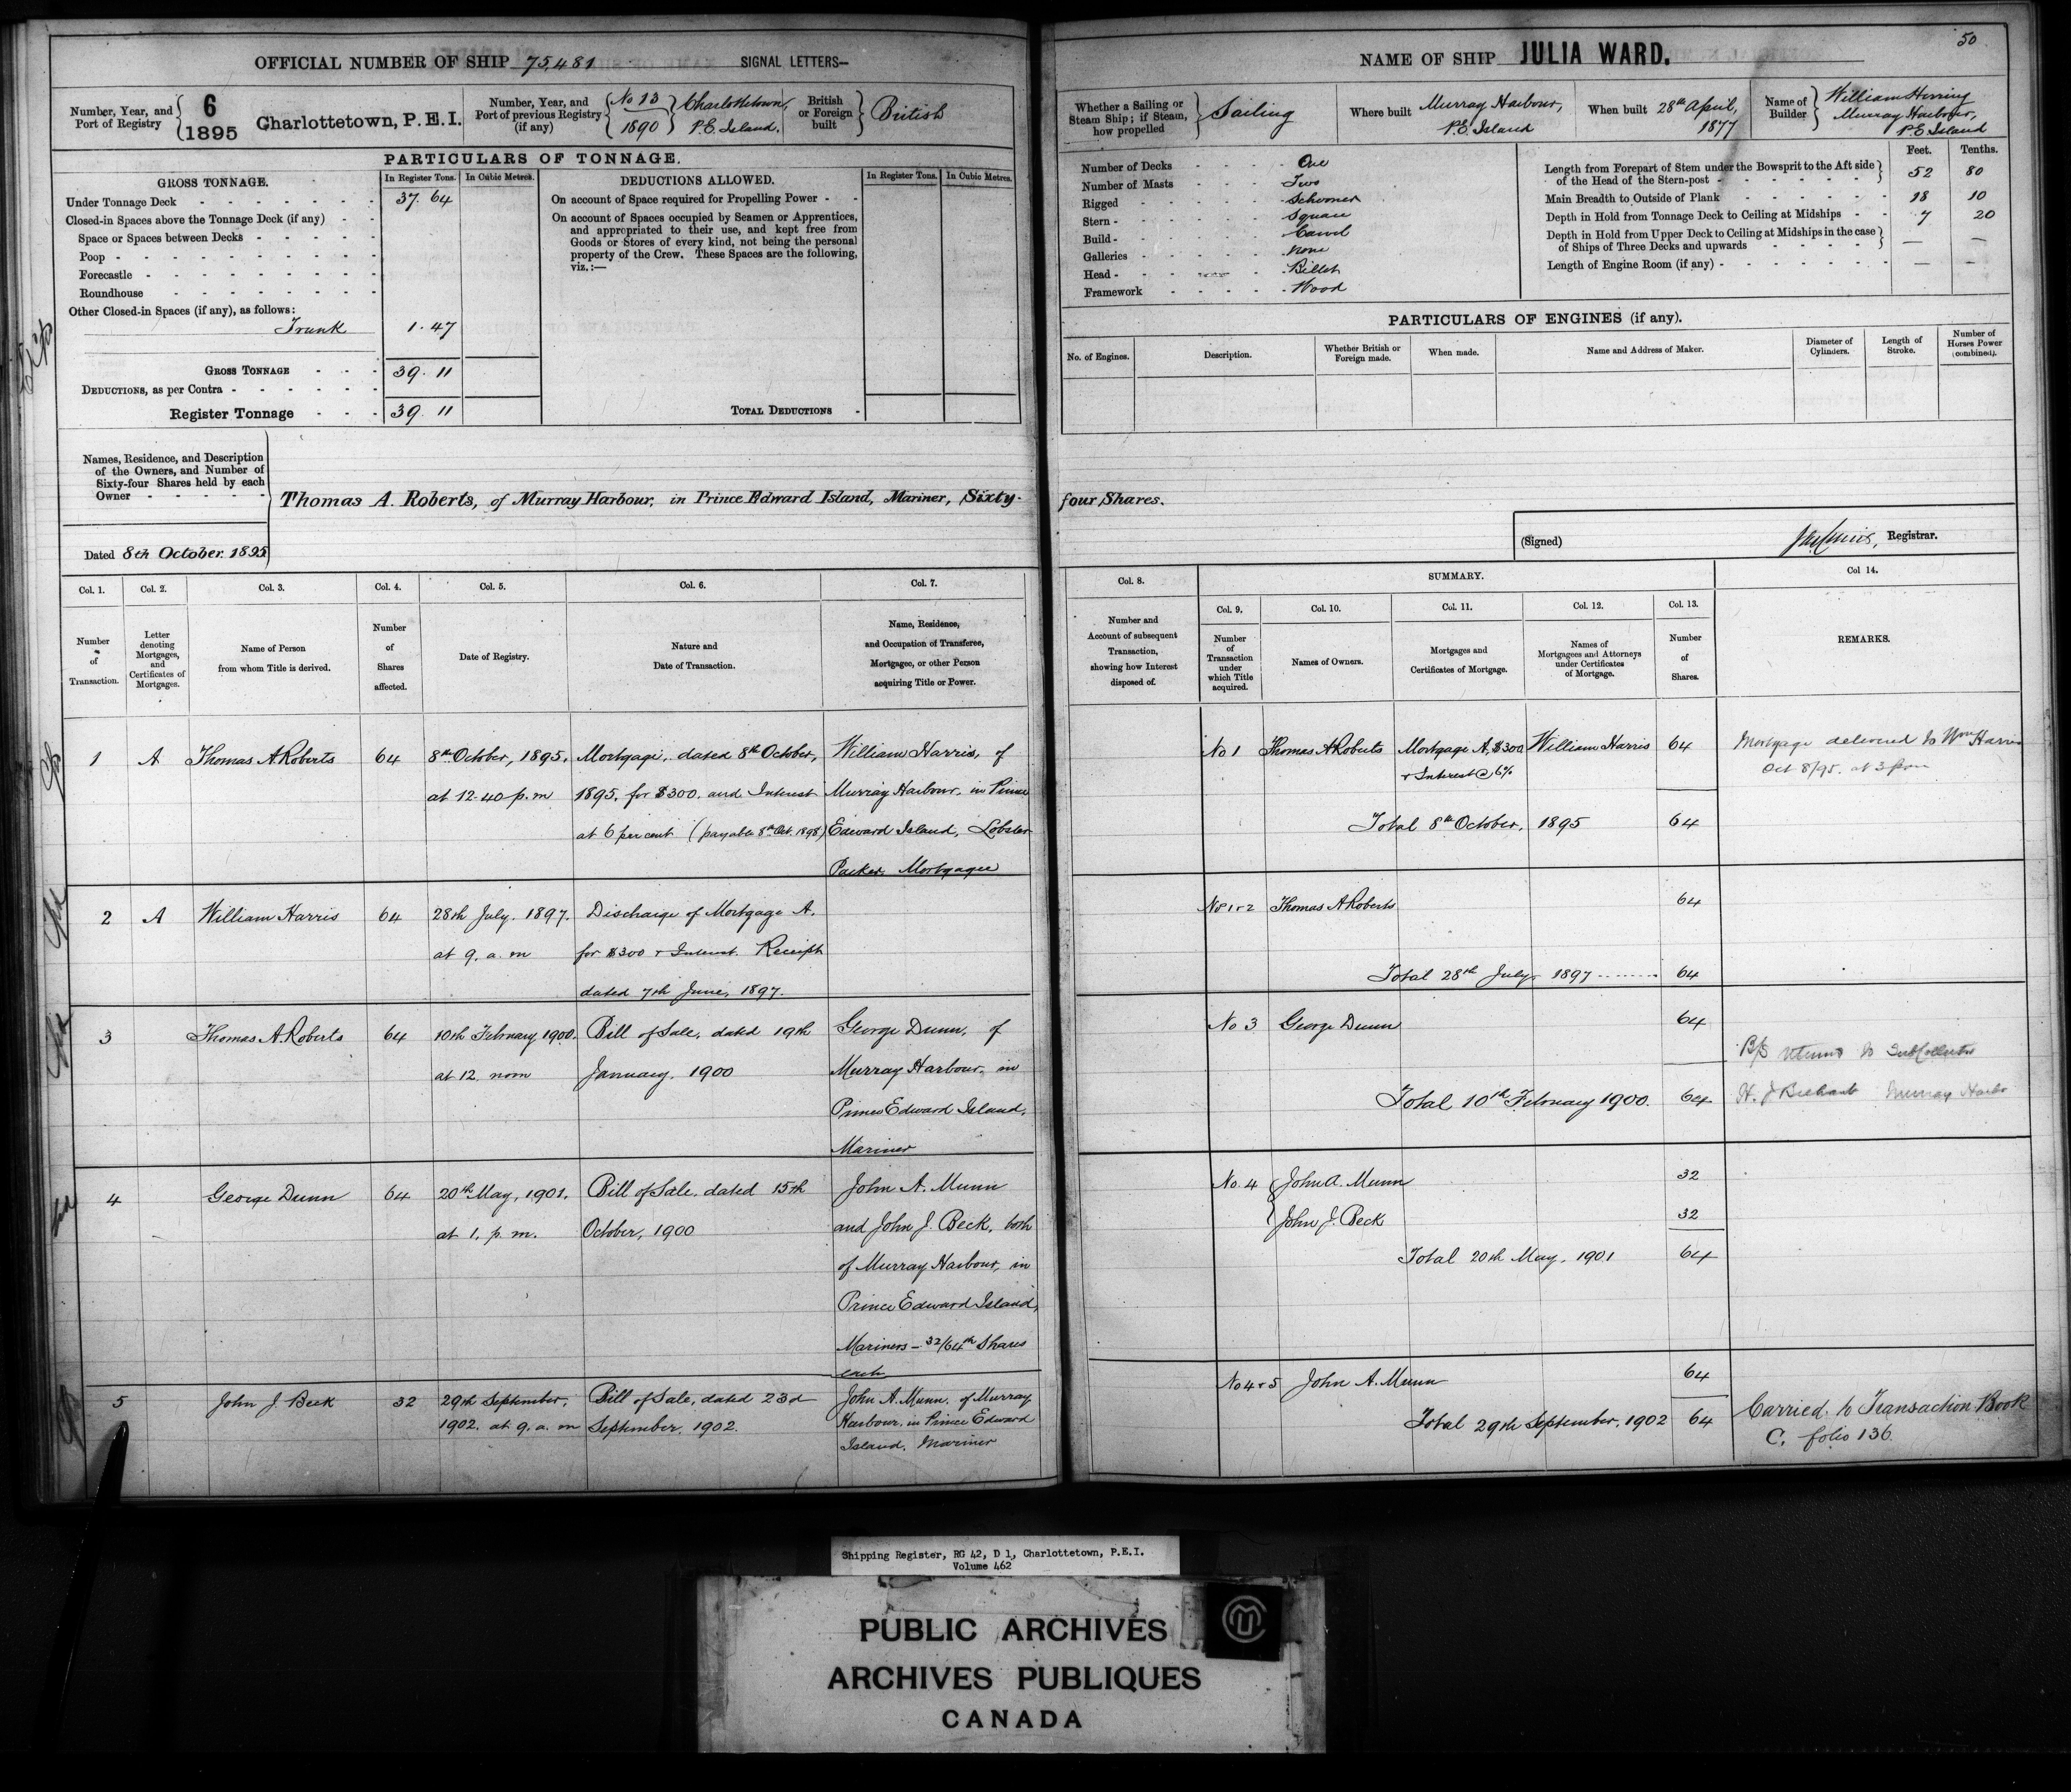 50
OFFICIAL NUMBER OF SHIP 75,481 SIGNAL LETTERS—
Number, Year, and Port of Registry 6 1895 Charlottetown, P.E.I.
Number, Year, and Port of previous Registry (if any) No 13 1890 Charlottetown, P.E. Island.
British or Foreign built British
PARTICULARS OF TONNAGE.
GROSS TONNAGE. In Register Tons. In Cubic Metres.
Under Tonnage Deck 37. 64
Closed-in Spaces above the Tonnage Deck (if any)
Space or Spaces between Decks
Poop
Forecastle
Roundhouse
Other Closed-in Spaces (if any), as follows:
Trunk 1. 47
GROSS TONNAGE 39. 11
DEDUCTIONS, as per Contra
Register Tonnage 39. 11
DEDUCTIONS ALLOWED. In Register Tons. In Cubic Metres.
On account of Space required for Propelling Power
On account of Spaces occupied by Seamen or Apprentices,
and appropriated to their use, and kept free from
Goods or Stores of every kind, not being the personal
property of the Crew. These Spaces are the following,
viz.:—
TOTAL DEDUCTIONS
NAME OF SHIP JULIA WARD.
Whether a Sailing or Steam Ship; if Steam, how propelled Sailing
Where built Murray Harbour, P.E. Island
When built 28th April, 1877
Name of Builder William Herring Murray Harbour, P.E Island
Number of Decks One
Number of Masts Two
Rigged Schooner
Stern Square
Build Carvel
Galleries None
Head Billet
Framework Wood
Feet. Tenths.
Length from Forepart of Stem under the Bowsprit to the Aft side
of the Head of the Stern-post 52 80
Main Breadth to Outside of Plank 18 10
Depth in Hold from Tonnage Deck to Ceiling at Midships 7 20
Depth in Hold from Upper Deck to Ceiling at Midships in the case
of Ships of Three Decks and upwards — —
Length of Engine Room (if any) — —
PARTICULARS OF ENGINES (if any).
No. of Engines. Description. Whether British or Foreign made. When made. Name and Address of Maker. Diameter of Cylinders. Length of Stroke. Number of Horses Power (combined).
Names, Residence, and Description
of the Owners, and Number of
Sixty-four Shares held by each
Owner
Thomas A. Roberts, of Murray Harbour, in Prince Edward Island, Mariner, Sixty-four Shares.
Dated 8th October. 1895
(Signed) Registrar.
Col. 1. Col. 2. Col. 3. Col. 4. Col. 5. Col. 6. Col. 7.
Number of Transaction.
Letter denoting Mortgages, and Certificates of Mortgages.
Name of Person from whom Title is derived.
Number of Shares affected.
Date of Registry.
Nature and Date of Transaction.
Name, Residence, and Occupation of Transferee, Mortgagee, or other Person acquiring Title or Power.
1 A Thomas A Roberts 64 8th October, 1895, Mortgage, dated 8th October, William Harris, of
at 12.40 p.m 1895, for $300. and Interest Murray Harbour, in Prince
at 6 per cent (payable 8th Oct. 1898) Edward Island, Lobster
Packer, Mortgagee
2 A William Harris 64 28th July, 1897. Discharge of Mortgage A.
at 9. a. m for $300 & Interest. Receipt
dated 7th June, 1897.
3 Thomas A. Roberts 64 10th February 1900. Bill of Sale, dated 19th George Dunn, of
at 12. noon January, 1900 Murray Harbour, in
Prince Edward Island,
Mariner
4 George Dunn 64 20th May, 1901. Bill of Sale, dated 15th John A. Munn
at 1. p. m. October, 1900 and John J. Beck, both
of Murray Harbour, in
Prince Edward Island,
Mariners — 32/64th Shares
each
5 John J. Beck 32 29th September, Bill of Sale, dated 23d John A. Munn, of Murray
1902, at 9. a. m September, 1902. Harbour, in Prince Edward
Island. Mariner
Col. 8. SUMMARY. Col 14.
Col. 9. Col. 10. Col. 11. Col. 12. Col. 13.
Number and Account of subsequent Transaction, showing how Interest disposed of.
Number of Transaction under which Title acquired.
Names of Owners.
Mortgages and Certificates of Mortgage.
Names of Mortgagees and Attorneys under Certificates of Mortgage.
Number of Shares.
REMARKS.
No 1 Thomas A Roberts Mortgage A, $300 William Harris 64 Mortgage delivered to Wm Harris
& Interest @ 6% Oct 8/95. at 3 pm
Total 8th October, 1895 64
Nos 1 & 2 Thomas A Roberts 64
Total 28th July 1897 64
No 3 George Dunn 64
B/S to Sub Collector
Total 10th February 1900. 64 H. J Murray Harbr
No. 4 John A. Munn 32
John J. Beck 32
Total 20th May, 1901 64
No 4 & 5 John A. Munn 64
Total 29th September, 1902 64 Carried to Transaction Book
C. folio 136.
Shipping Register, RG 42, D 1, Charlottetown, P.E.I.
Volume 462
PUBLIC ARCHIVES
ARCHIVES PUBLIQUES
CANADA